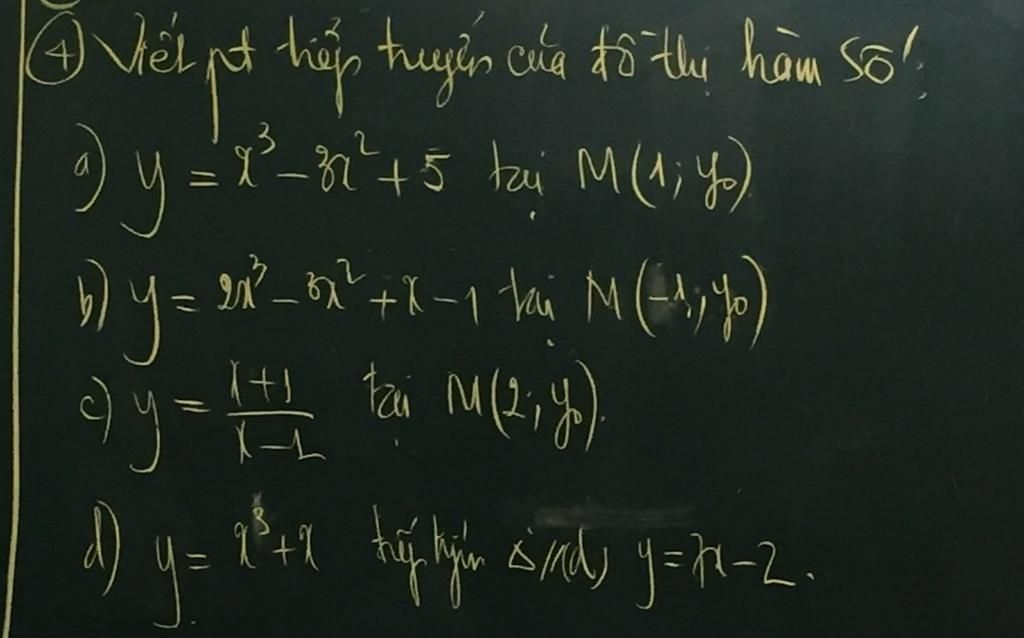 ④ Viết pt tiếp tuyến của đồ thị hàm số:
a) y = x³ - 3x² + 5 tại M(1; y₀)
b) y = 2x³ - 3x² + x - 1 tại M(-1; y₀)
c) y = \frac{x+1}{x-1} tại M(2; y₀).
d) y = x³ + x tiếp tuyến Δ // d, y = 7x - 2.